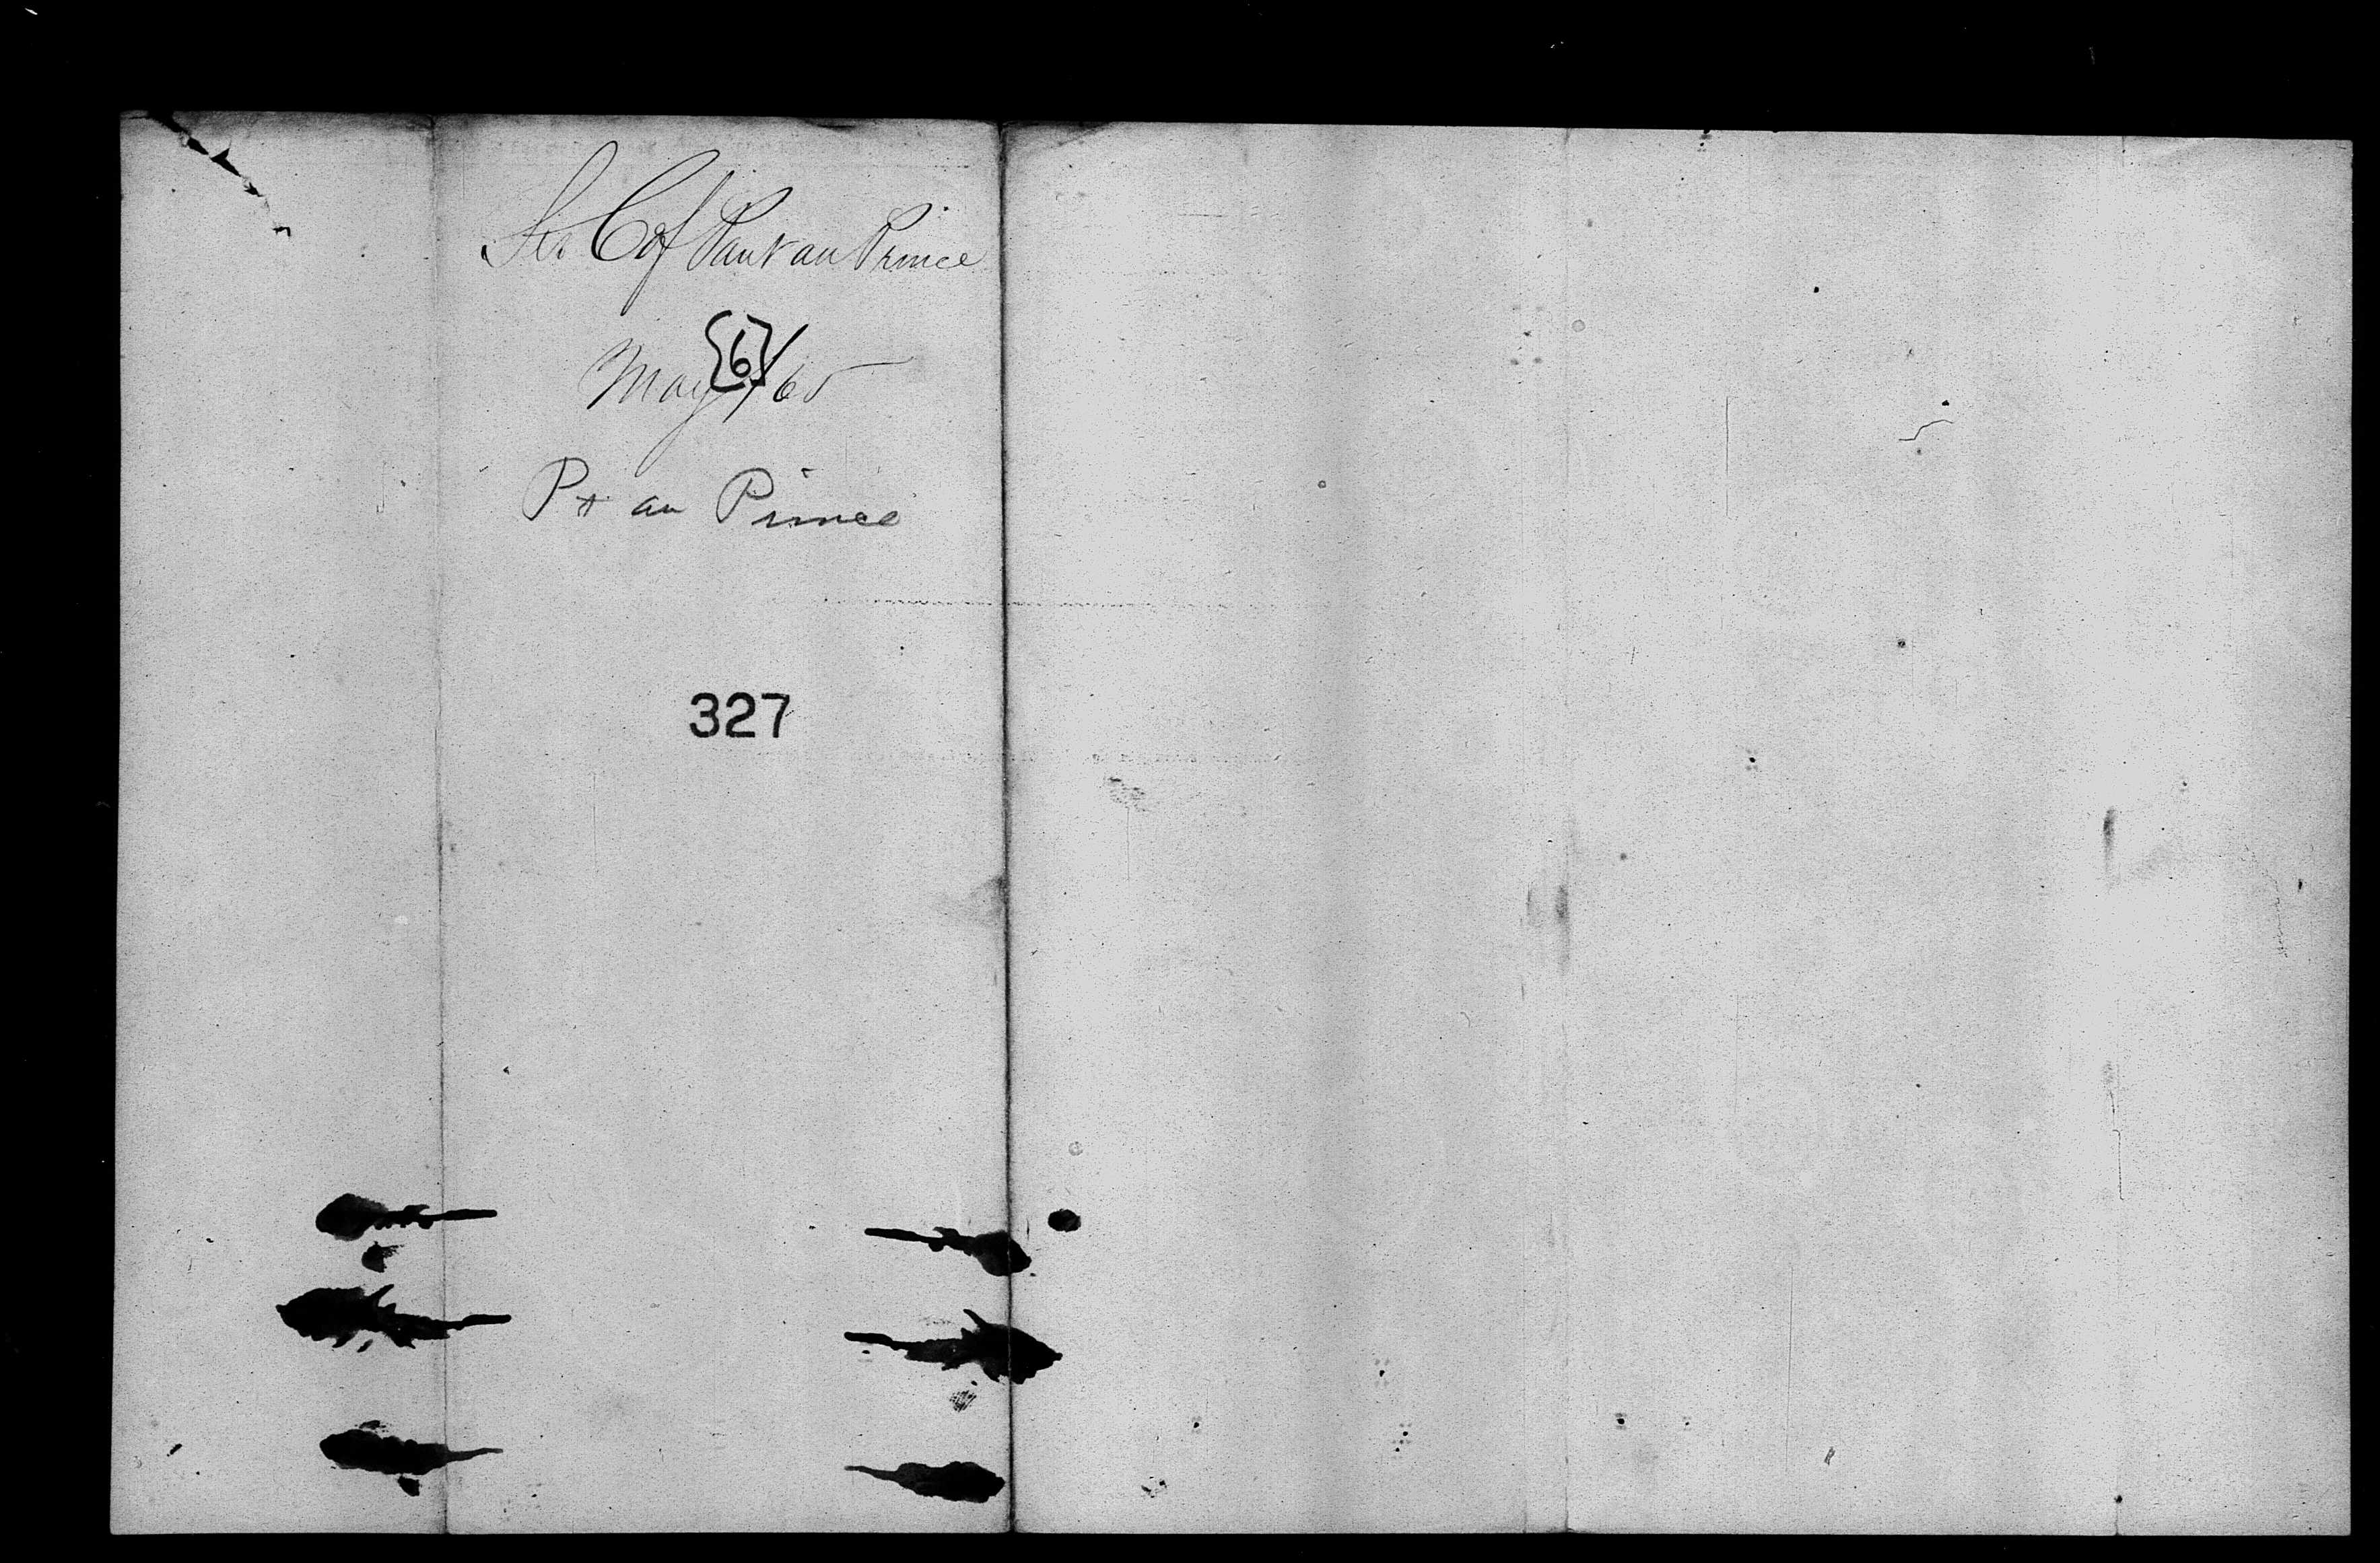 C of Paut au Prince
May {6}/65
Pt au Prince
327